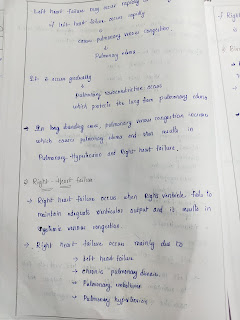 Left heart failure may occur rapidly or
if left heart failure occurs rapidly
↓
causes pulmonary venous congestion
↓
Pulmonary edema
If it occurs gradually
↓
Pulmonary vasoconstriction occurs
which protects the lung from pulmonary edema
→ In long standing cases, pulmonary venous congestion occurs
which causes pulmonary edema and also results in
Pulmonary Hypertension and Right heart failure.
② Right Heart failure
→ Right heart failure occurs when Right ventricle fails to
maintain adequate ventricular output and it results in
systemic venous congestion.
→ Right heart failure occurs mainly due to
→ Left heart failure
→ chronic pulmonary disease
→ Pulmonary embolism
→ Pulmonary hypertension